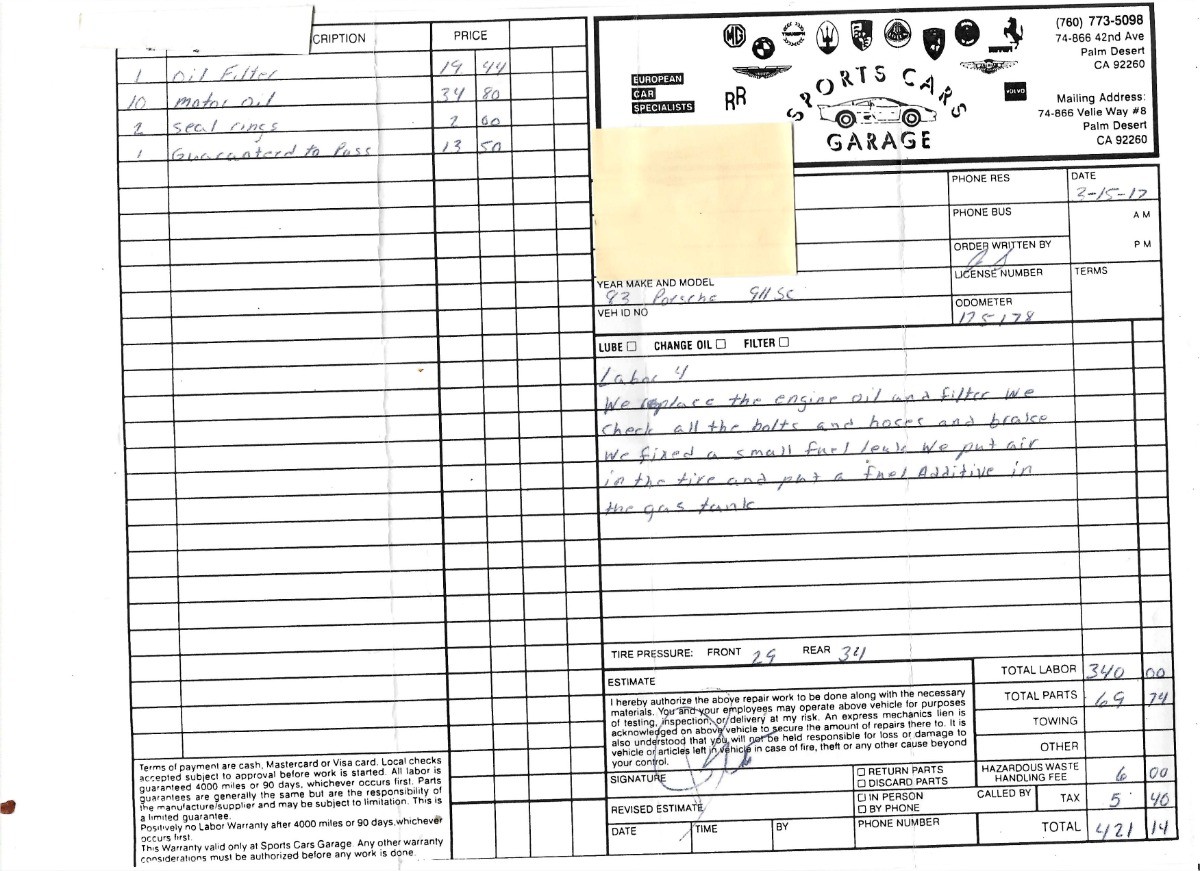 CRIPTION PRICE
1 Oil Filter 19 44
10 motor oil 34 80
2 seal rings 2 00
1 Guaranteed to Pass 13 50
Terms of payment are cash, Mastercard or Visa card. Local checks
accepted subject to approval before work is started. All labor is
guaranteed 4000 miles or 90 days, whichever occurs first. Parts
guarantees are generally the same but are the responsibility of
the manufacture/supplier and may be subject to limitation. This is
a limited guarantee.
Positively no Labor Warranty after 4000 miles or 90 days, whichever
occurs first.
This Warranty valid only at Sports Cars Garage. Any other warranty
considerations must be authorized before any work is done.
MG
TRIUMPH
Ferrari
VOLVO
EUROPEAN
CAR
SPECIALISTS
RR
SPORTS CARS
GARAGE
(760) 773-5098
74-866 42nd Ave
Palm Desert
CA 92260
Mailing Address:
74-866 Velie Way #8
Palm Desert
CA 92260
PHONE RES
DATE
3-15-17
PHONE BUS
A M
ORDER WRITTEN BY
P M
LICENSE NUMBER
TERMS
YEAR MAKE AND MODEL
83 Porsche 911SC
VEH ID NO
ODOMETER
175178
LUBE □ CHANGE OIL □ FILTER □
Labor 4
We replace the engine oil and filter We
check all the bolts and hoses and brake
We fixed a small fuel leak We put air
in the tire and put a fuel Additive in
the gas tank
TIRE PRESSURE: FRONT 29 REAR 34
ESTIMATE
I hereby authorize the above repair work to be done along with the necessary
materials. You and your employees may operate above vehicle for purposes
of testing, inspection, or delivery at my risk. An express mechanics lien is
acknowledged on above vehicle to secure the amount of repairs there to. It is
also understood that you will not be held responsible for loss or damage to
vehicle or articles left in vehicle in case of fire, theft or any other cause beyond
your control.
SIGNATURE
□ RETURN PARTS
□ DISCARD PARTS
REVISED ESTIMATE
□ IN PERSON
□ BY PHONE
CALLED BY
DATE TIME BY PHONE NUMBER
TOTAL LABOR 340 00
TOTAL PARTS 69 74
TOWING
OTHER
HAZARDOUS WASTE
HANDLING FEE 6 00
TAX 5 40
TOTAL 421 14